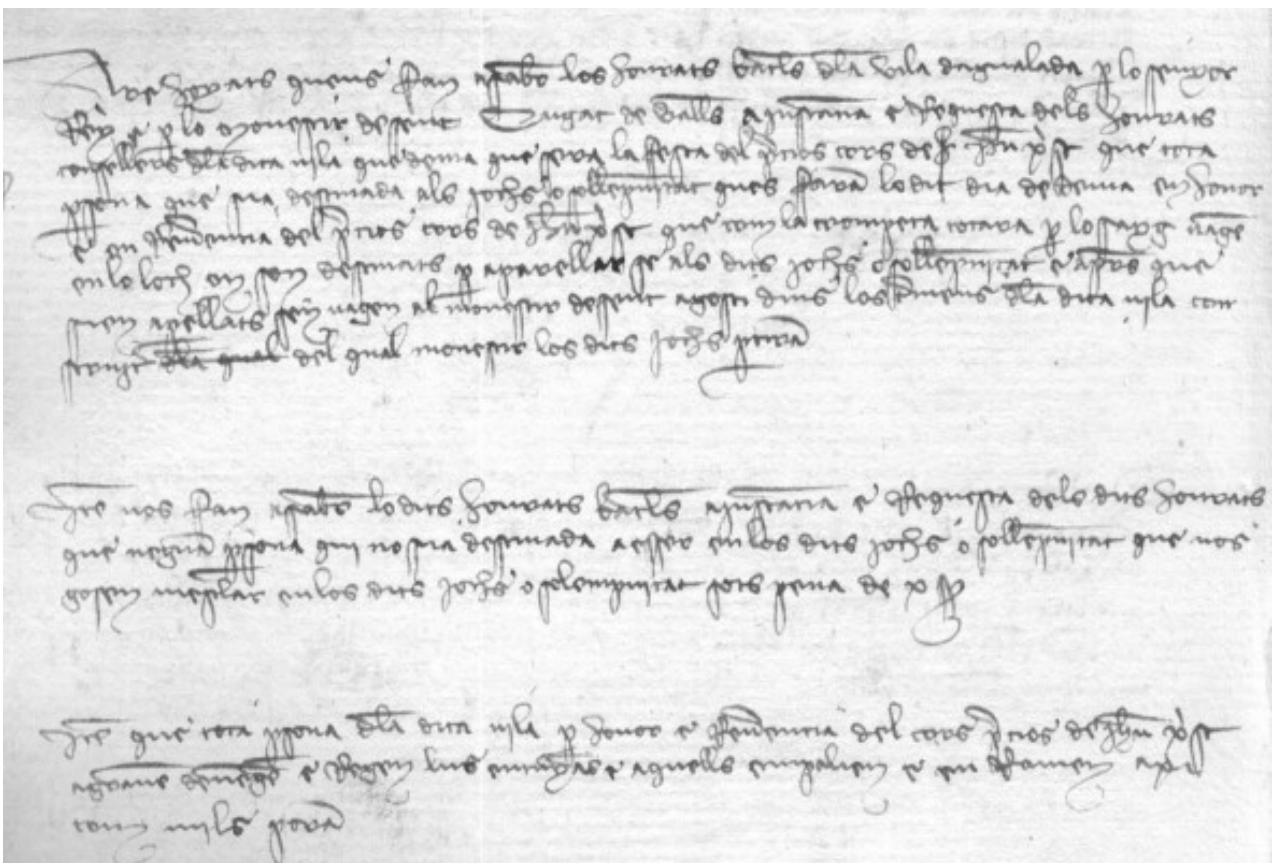 Ara hoyats queus fan asaber los honrats batles dla vila dagualada p lo senyor
Rey e p lo monestir de sent Cugat de valls a instancia e Requesta dels honrats
consellers dla dita vila que dema que sera la festa del pcios cors de Jhu xpst que tota
psona que sia destinada als jochs o sollepnitat ques faran lo dit dia de dema en honor
e en Reuencia del pcios cors de Jhu xpst que com la trompeta tocara p lo seny vage
en lo loch on son destinats p aparellar se als dits jochs o sollepnitat e apres que
sien apellats sen vagen al monestir de sent agosti dins los tmens dla dita vila con
struit dla qual del qual monestir los dits jochs ptiran
Ite nos fan asaber lo dits honrats batles a instancia e Requesta dels dits honrats
que neguna psona qui no sia destinada a esser en los dits jochs o sollepnitat que nos
gosen mesclar en los dits jochs o solempnitat sots pena de x ss
Ite que tota psona dla dita vila p honor e Reuencia del cors pcios de Jhu xpst
agranen e Reguen lus e aquells empalien e en Ramen axi
com mils poran